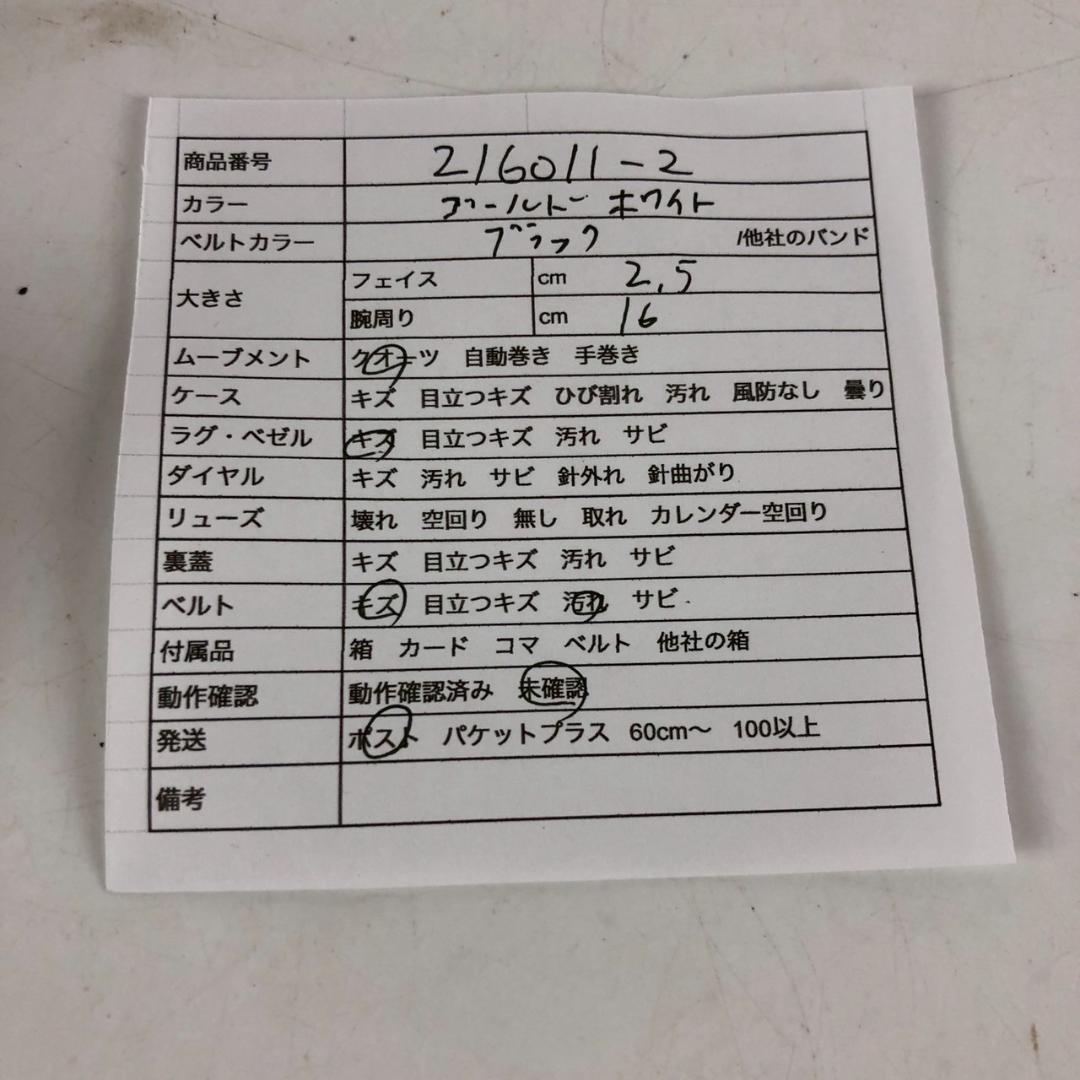 商品番号 216011-2
カラー ゴールド ホワイト
ベルトカラー ブラック /他社のバンド
大きさ フェイス cm 2.5
腕周り cm 16
ムーブメント クオーツ 自動巻き 手巻き
ケース キズ 目立つキズ ひび割れ 汚れ 風防なし 曇り
ラグ・ベゼル キズ 目立つキズ 汚れ サビ
ダイヤル キズ 汚れ サビ 針外れ 針曲がり
リューズ 壊れ 空回り 無し 取れ カレンダー空回り
裏蓋 キズ 目立つキズ 汚れ サビ
ベルト キズ 目立つキズ 汚れ サビ
付属品 箱 カード コマ ベルト 他社の箱
動作確認 動作確認済み 未確認
発送 ポスト パケットプラス 60cm～ 100以上
備考